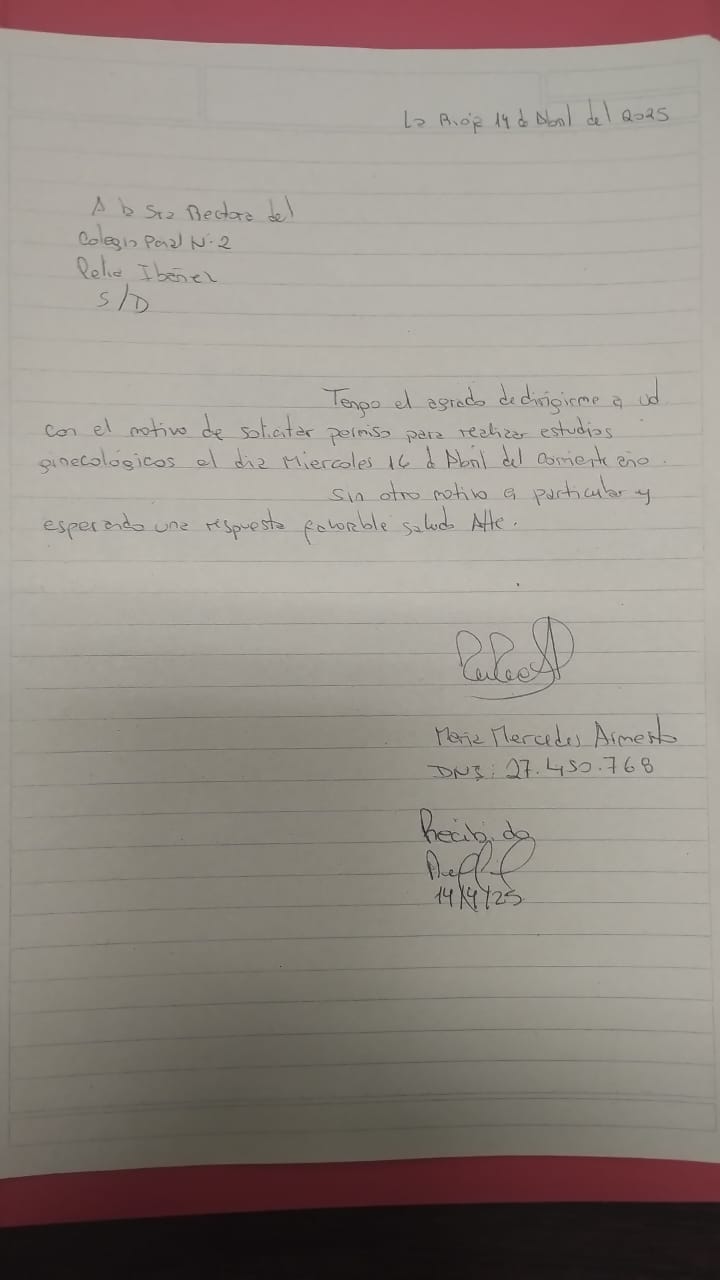 La Rioja 14 de Abril del 2025
A la Sra Rectora del
Colegio Pcial N·2
Delia Ibañez
S/D
Tengo el agrado de dirigirme a ud
con el motivo de solicitar permiso para realizar estudios
ginecológicos el día Miercoles 16 de Abril del corriente año.
Sin otro motivo a particular y
esperando una respuesta favorable saludo Atte.
Maria Mercedes Armesto
DNI: 27.450.768
Recibido
14/4/25